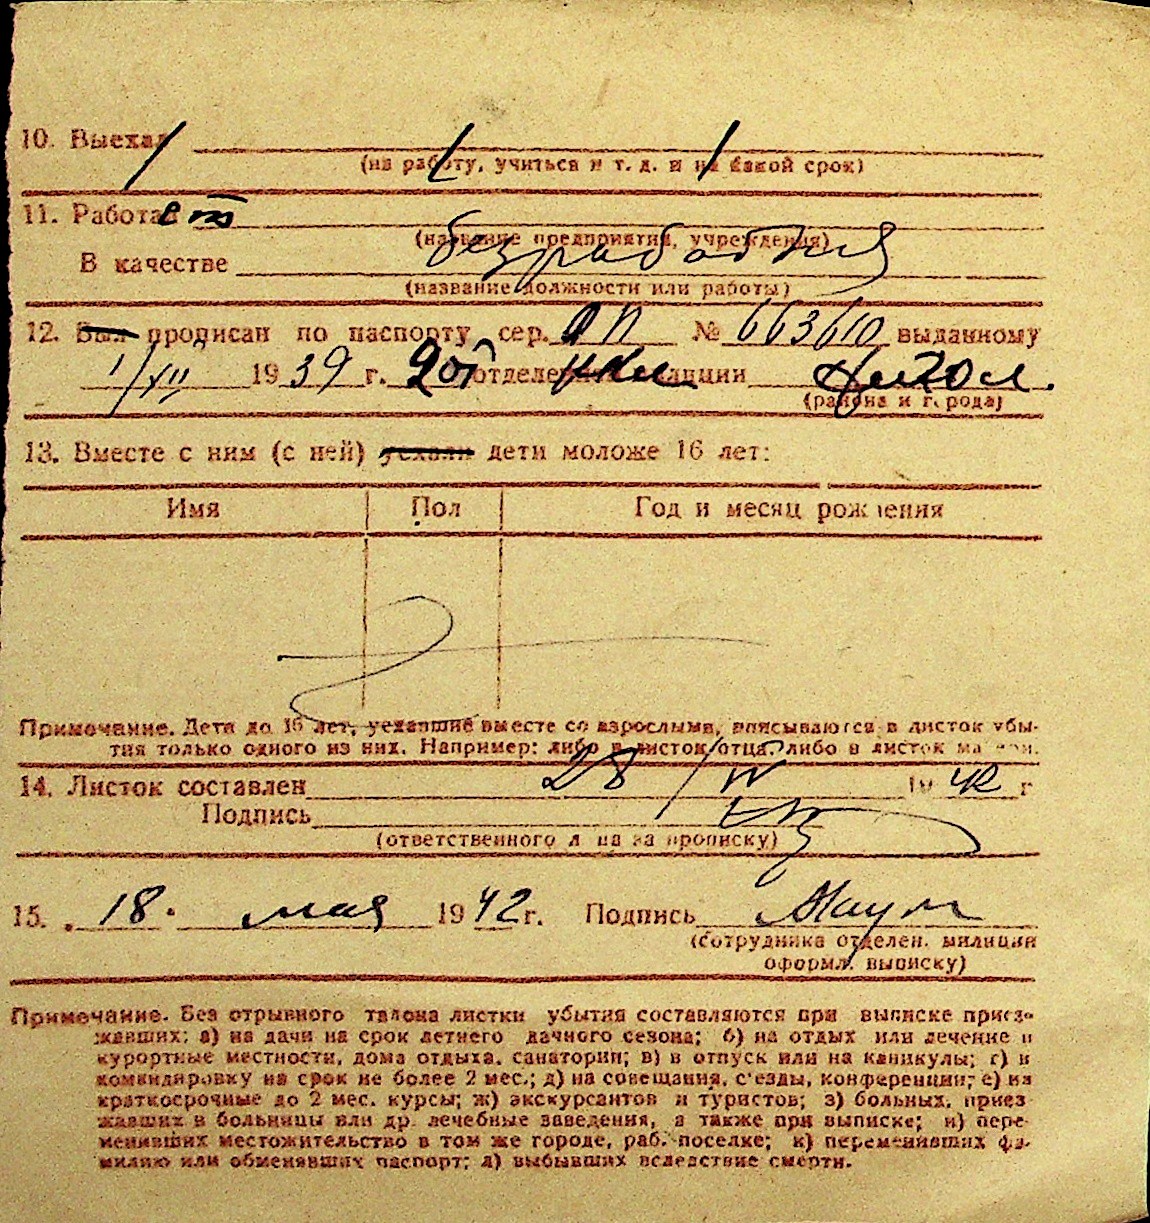 10. Выехал
(на работу, учиться и т. д. и на какой срок)
11. Работает
(название предприятия, учреждения)
безработная
В качестве
(название должности или работы)
12. Был прописан по паспорту сер. № 663610 выданному
1/XII 1939 г. отделением милиции
(района и города)
13. Вместе с ним (с ней) уехали дети моложе 16 лет:
Имя Пол Год и месяц рождения
Примечание. Дети до 16 лет, уехавшие вместе со взрослыми, вписываются в листок убы-
тия только одного из них. Например: либо в листок отца, либо в листок матери.
14. Листок составлен 28/IV 1942 г
Подпись
(ответственного лица за прописку)
15. 18. мая 1942 г. Подпись
(сотрудника отделен. милиции
оформл. выписку)
Примечание. Без отрывного талона листки убытия составляются при выписке приез-
жавших: а) на дачи на срок летнего дачного сезона; б) на отдых или лечение в
курортные местности, дома отдыха, санатории; в) в отпуск или на каникулы; г) в
командировку на срок не более 2 мес.; д) на совещания, с'езды, конференции; е) на
краткосрочные до 2 мес. курсы; ж) экскурсантов и туристов; з) больных, приез-
жавших в больницы или др. лечебные заведения, а также при выписке; и) пере-
менивших местожительство в том же городе, раб. поселке; к) переменивших фа-
милию или обменявших паспорт; л) выбывших вследствие смерти.